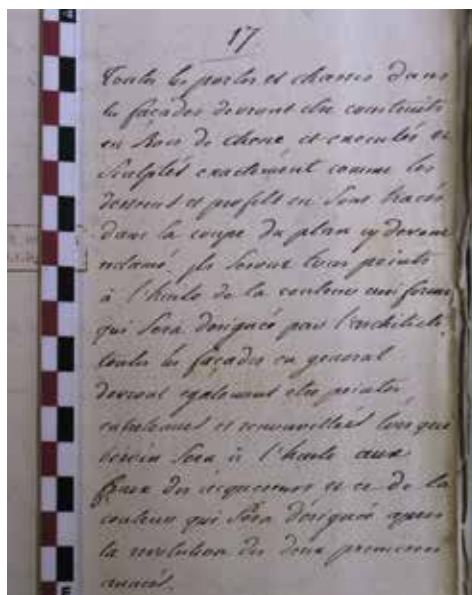 17
Toutes les portes et chassis dans
les façades devront etre construits
en bois de chene, et executés et
sculptés exactement comme les
desseins et profils en sont tracés
dans la coupe du plan cy devant
reclamé, ils seront tous peints
à l'huile de la couleur uniforme
qui sera designée par l'architecte,
toutes les façades en general
devront egalement etre peintes,
et renouvellées lorsque
besoin sera à l'huile aux
fraix des acquereurs et ce de la
couleur qui sera designée apres
la revolution des deux premieres
années.